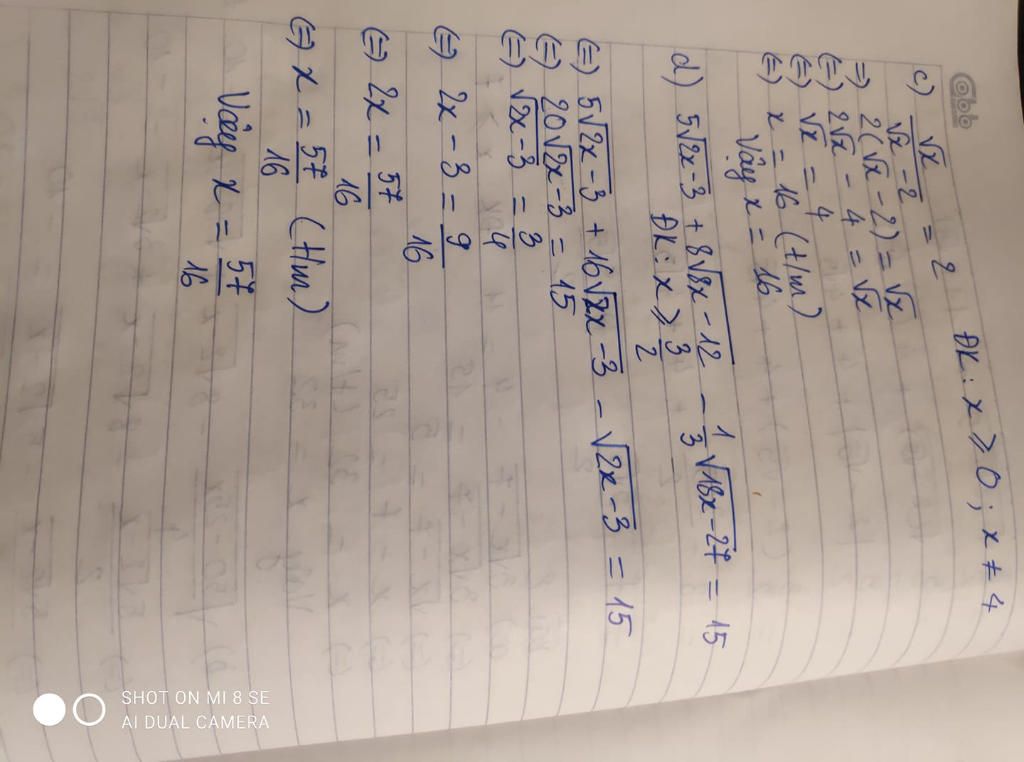 abb
c) √x / (√x - 2) = 2 ĐK: x ≥ 0; x ≠ 4
=) 2(√x - 2) = √x
(=) 2√x - 4 = √x
(=) √x = 4
(=) x = 16 (t/m)
Vậy x = 16
d) 5√(2x-3) + 8√(8x-12) - 1/3 √(18x-27) = 15
ĐK: x ≥ 3/2
(=) 5√(2x-3) + 16√(2x-3) - √(2x-3) = 15
(=) 20√(2x-3) = 15
(=) √(2x-3) = 3/4
(=) 2x - 3 = 9/16
(=) 2x = 57/16
(=) x = 57/16 (t/m)
Vậy x = 57/16
SHOT ON MI 8 SE
AI DUAL CAMERA